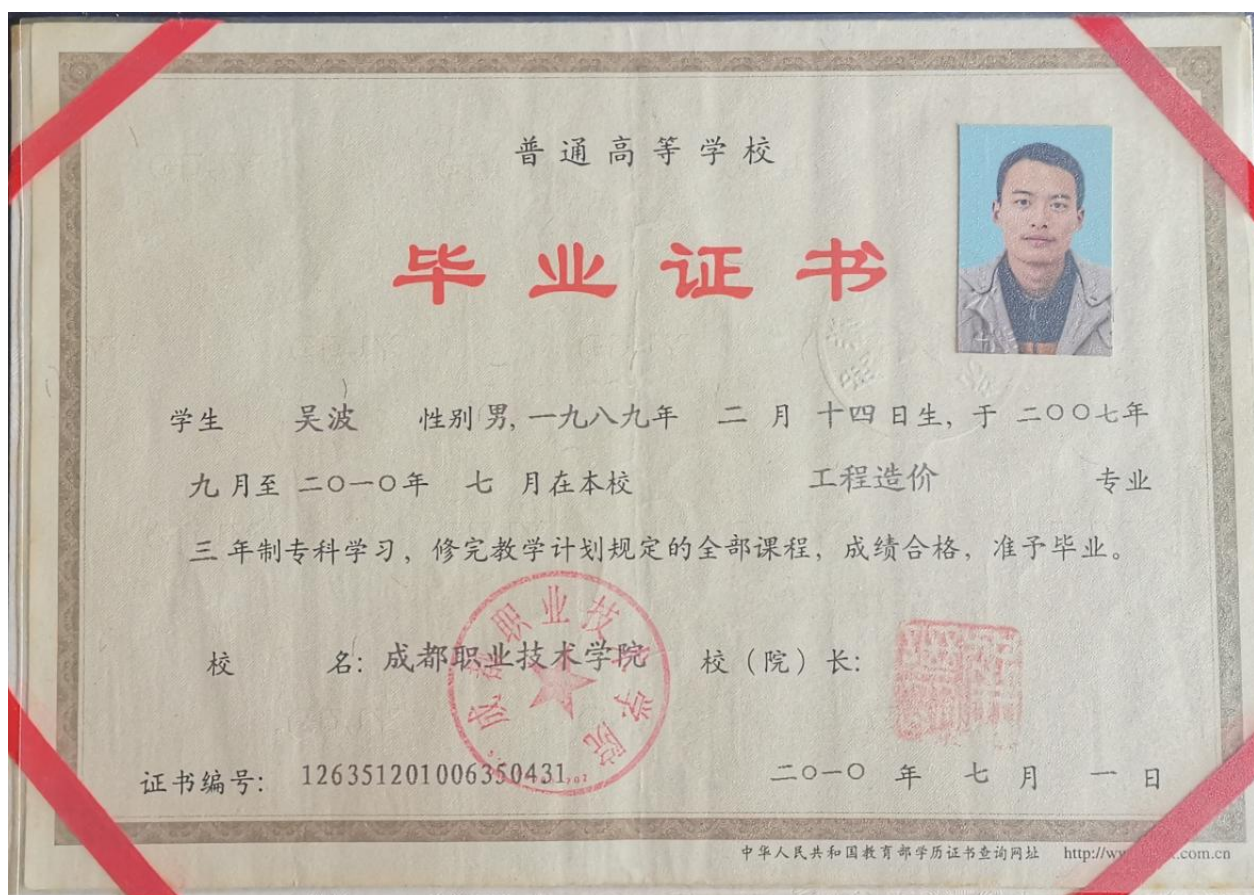 普通高等学校
毕业证书
学生 吴波 性别 男, 一九八九年 二 月 十四 日生, 于 二〇〇七年
九 月至 二〇一〇年 七 月在本校 工程造价 专业
三 年制专科学习, 修完教学计划规定的全部课程, 成绩合格, 准予毕业。
校 名: 成都职业技术学院 校（院）长:
成都职业技术学院
证书编号: 126351201006350431 二〇一〇 年 七 月 一 日
中华人民共和国教育部学历证书查询网址 http://w .com.cn